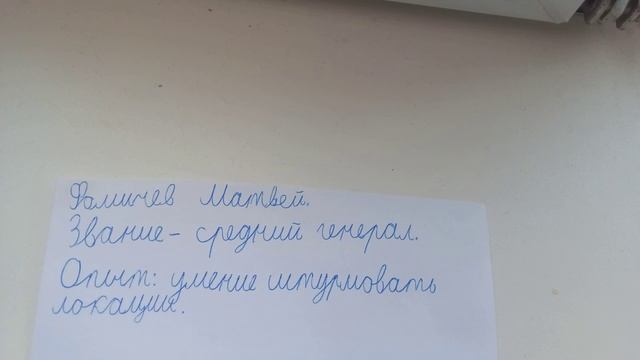 Фамичев Матвей.
Звание - средний генерал.
Опыт: умение штурмовать
локации.